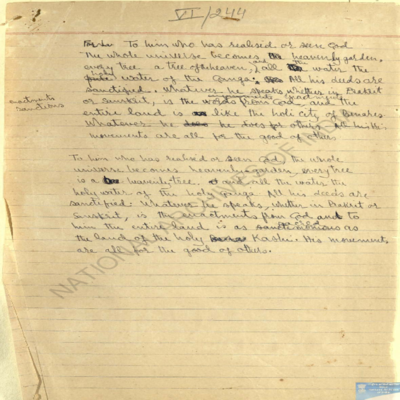 VI/244
To him who has realised or seen God
The whole universe becomes heavenly garden,
every tree a tree of heaven, and all water the
holy water of the Ganga. All his deeds are
sanctified. Whatever he speaks whether in Prakrit
or Sanskrit, is the words from God, and the
entire land is like the holi city of Benares.
Whatever he does for others, all his
movements are all for the good of others.
To him who has realised or seen God the whole
universe becomes heavenly garden, every tree
is a heavenly tree, and all the water the
holy water of the holy Ganga. All his deeds are
sanctified. Whatever he speaks, whether in Prakrit or
Sanskrit, is the enactments from God and to
him the entire land is as as
the land of the holy Kashi. His movements
are all for the good of others.
NATIONAL